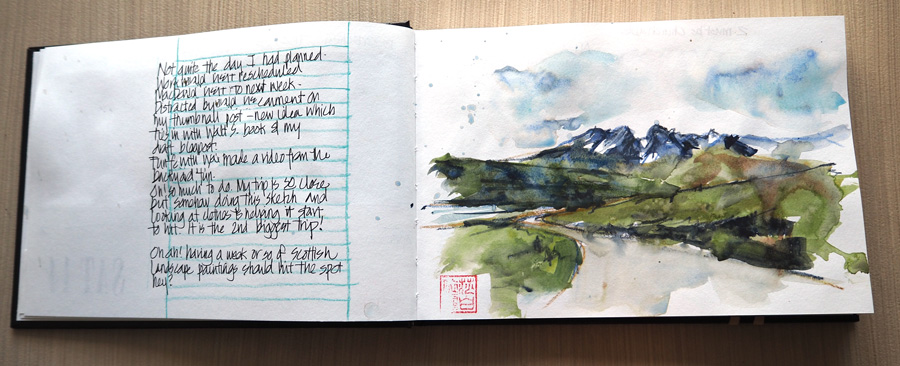 Not quite the day I had planned.
Work
visit rescheduled
visit to next week.
Distracted by
comment on
my thumbnail post - new idea which
ties in with Walt S. book & my
draft blogpost.
made a video from the
backyard fun.
Oh! so much to do. My trip is SO close
but somehow doing this sketch and
looking at clothes is helping it start
to hit! It is the 2nd biggest trip!
Oh ah! having a week or so of Scottish
landscape paintings should hit the spot
hey?